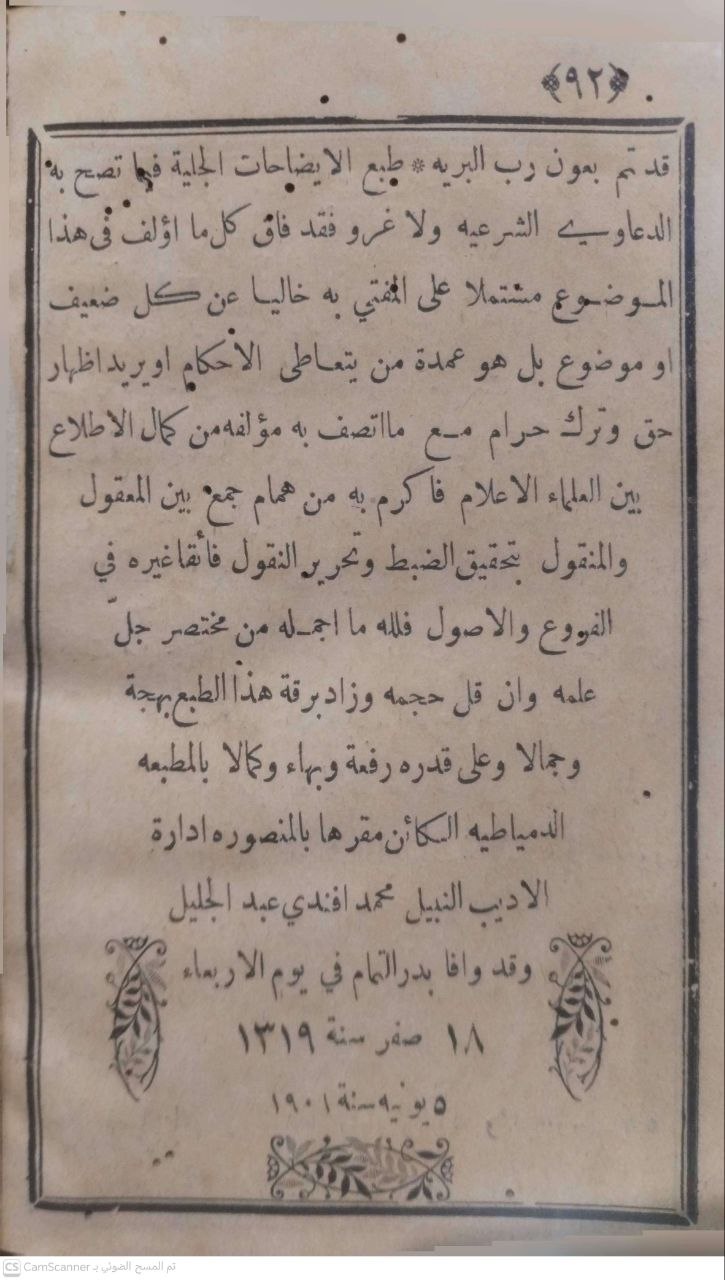 ﴿٩٢﴾
قد تم بعون رب البريه * طبع الايضاحات الجلية فيما تصح به
الدعاوي الشرعيه ولا غرو فقد فاق كل ما اؤلف فى هذا
الموضوع مشتملا على المفتي به خاليا عن كل ضعيف
او موضوع بل هو عمدة من يتعاطى الأحكام او يريد اظهار
حق وترك حرام مع مااتصف به مؤلفه من كمال الاطلاع
بين العلماء الاعلام فاكرم به من همام جمع بين المعقول
والمنقول بتحقيق الضبط وتحرير النقول فأتقا غيره في
الفروع والاصول فلله ما اجمله من مختصر جلّ
علمه وان قل حجمه وزاد برقة هذا الطبع بهجة
وجمالا وعلى قدره رفعة وبهاء وكمالا بالمطبعه
الدمياطيه الكائن مقرها بالمنصوره ادارة
الاديب النبيل محمد افندي عبد الجليل
وقد وافا بدر التمام في يوم الاربعاء
١٨ صفر سنة ١٣١٩
٥ يونيه سنة ١٩٠١
CS CamScanner تم المسح الضوئي بـ